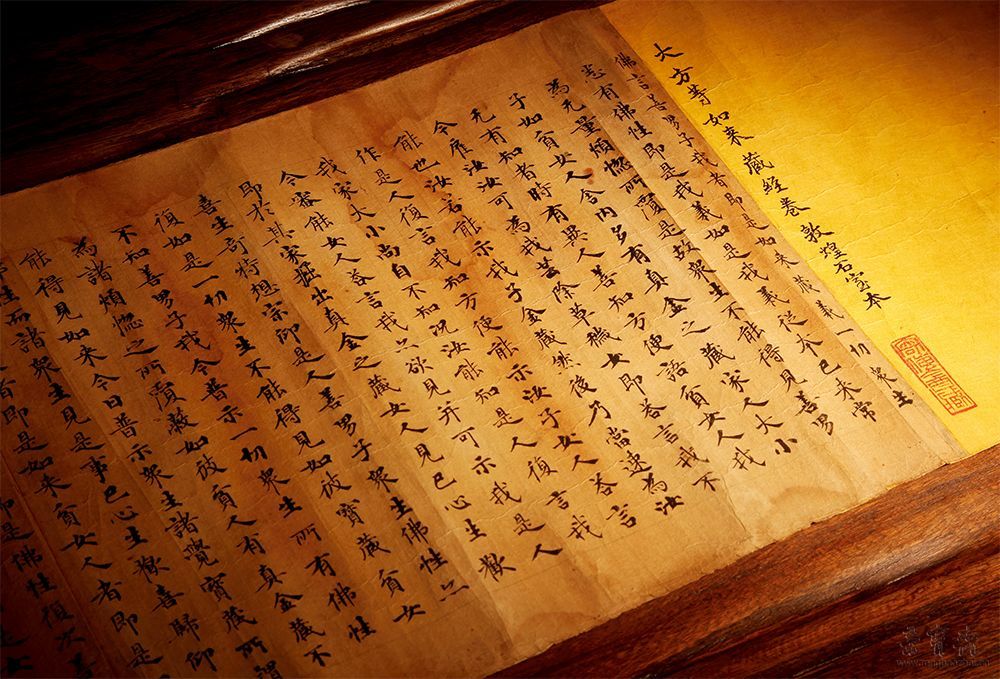 大方等如来藏經卷 敦煌石室本
佛言善男子我者即是如来藏義一切衆生
悉有佛性即是我義如是我義從本已来常
為无量煩惱所覆是故衆生不能得見善男
子如貧女人舍内多有真金之藏家人大小
无有知者時有異人善知方便語貧女人我
今雇汝汝可為我芸除草穢女即答言我不
能也汝若能示我子金藏然後乃當速為汝
作是人復言我知方便能示汝子女人答言
我家大小尚自不知况汝能知是人復言我
今審能女人答言我亦欲見并可示我是人
即於其家掘出真金之藏女人見已心生歡
喜生奇特想宗仰是人善男子衆生佛性亦
復如是一切衆生不能得見如彼寶藏貧女
不知善男子我今普示一切衆生所有佛性
為諸煩惱之所覆蔽如彼貧人有真金藏不
能得見如来今日普示衆生諸覺寶藏所謂
性而諸衆生見是事已心生歡喜歸仰
者即是如来貧女人者即是
即是佛性復次善